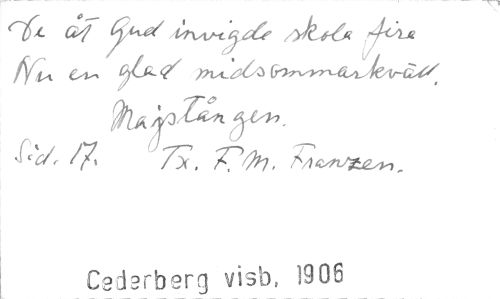 De åt Gud invigde skola fira
Nu en glad midsommarkväll.
Majstången.
Sid. 17. Tx. F. M. Franzen.
Cederberg visb, 1906